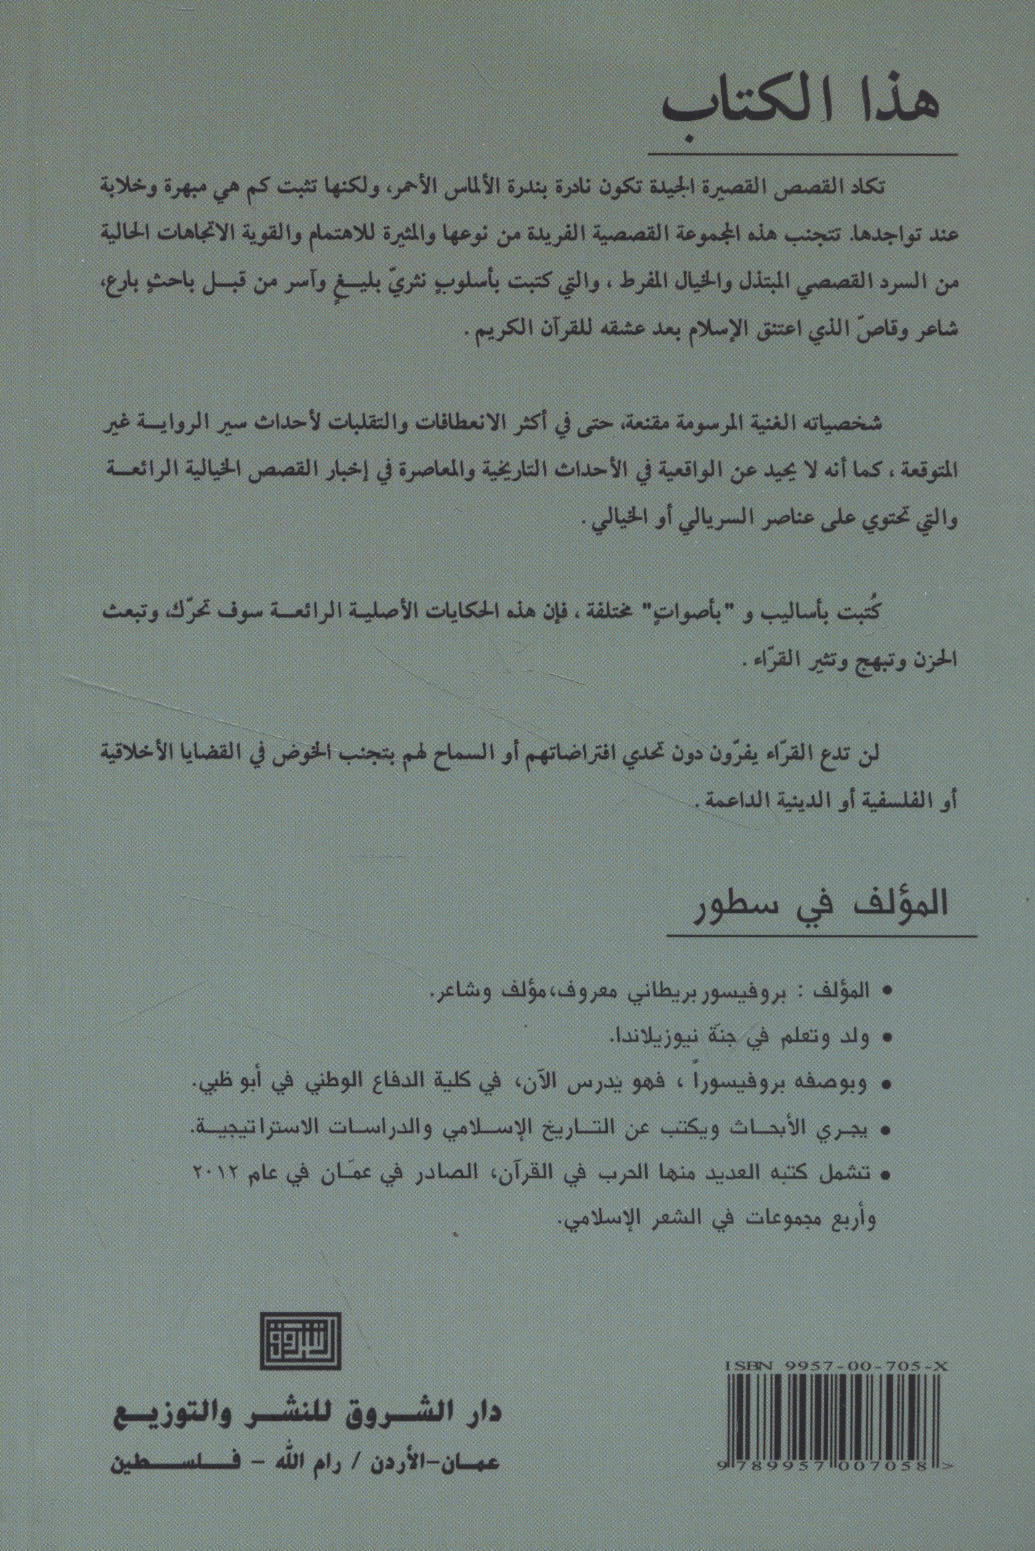 هذا الكتاب
تكاد القصص القصيرة الجيدة تكون نادرة بندرة الألماس الأحمر، ولكنها تثبت كم هي مبهرة وخلابة
عند تواجدها. تتجنب هذه المجموعة القصصية الفريدة من نوعها والمثيرة للاهتمام والقوية الاتجاهات الحالية
من السرد القصصي المبتذل والخيال المفرط ، والتي كتبت بأسلوبٍ نثريّ بليغٍ وآسر من قبل باحثٍ بارع،
شاعر وقاصّ الذي اعتنق الإسلام بعد عشقه للقرآن الكريم .
شخصياته الغنية المرسومة مقنعة، حتى في أكثر الانعطافات والتقلبات لأحداث سير الرواية غير
المتوقعة ، كما أنه لا يحيد عن الواقعية في الأحداث التاريخية والمعاصرة في إخبار القصص الخيالية الرائعة
والتي تحتوي على عناصر السريالي أو الخيالي .
كُتبت بأساليب و "بأصواتٍ" مختلفة ، فإن هذه الحكايات الأصلية الرائعة سوف تحرّك، وتبعث
الحزن وتبهج وتثير القرّاء .
لن تدع القرّاء يفرّون دون تحدي افتراضاتهم أو السماح لهم بتجنب الخوض في القضايا الأخلاقية
أو الفلسفية أو الدينية الداعمة .
المؤلف في سطور
• المؤلف : بروفيسور بريطاني معروف،مؤلف وشاعر.
• ولد وتعلم في جنّة نيوزيلاندا.
• وبوصفه بروفيسوراً ، فهو يدرس الآن، في كلية الدفاع الوطني في أبو ظبي.
• يجري الأبحاث ويكتب عن التاريخ الإسلامي والدراسات الاستراتيجية.
• تشمل كتبه العديد منها الحرب في القرآن، الصادر في عمّان في عام ٢٠١٢
وأربع مجموعات في الشعر الإسلامي.
الشروق
ISBN 9957-00-705-X
دار الشروق للنشر والتوزيع
عمان-الأردن / رام الله - فلسطين
9 789957 007058 >